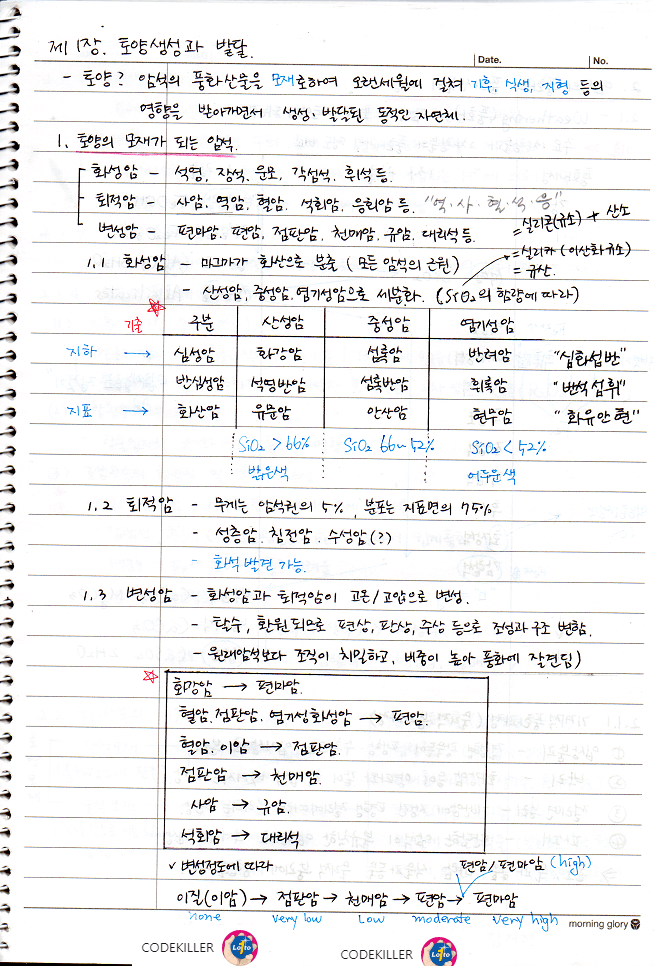 제 1장. 토양생성과 발달.
Date. No.
- 토양? 암석의 풍화산물을 모재로하여 오랜세월에 걸쳐 기후, 식생, 지형 등의
영향을 받아가면서 생성·발달된 동적인 자연체.
1. 토양의 모재가 되는 암석.
화성암 - 석영, 장석, 운모, 각섬석, 휘석 등.
퇴적암 - 사암, 역암, 혈암, 석회암, 응회암 등. "역·사·혈·석·응"
변성암 - 편마암, 편암, 점판암, 천매암, 규암, 대리석 등.
=실리콘(규소) + 산소
=실리카 (이산화규소)
=규산.
1.1 화성암 - 마그마가 화산으로 분출 (모든 암석의 근원)
- 산성암, 중성암, 염기성암으로 세분화. (SiO2의 함량에 따라)
기출 구분 산성암 중성암 염기성암
지하 → 심성암 화강암 섬록암 반려암 "심화섬반"
반심성암 석영반암 섬록반암 휘록암 "반석섬휘"
지표 → 화산암 유문암 안산암 현무암 "화유안현"
SiO2 > 66% SiO2 66~52% SiO2 < 52%
밝은색 어두운색
1.2 퇴적암 - 무게는 암석권의 5%, 분포는 지표면의 75%
- 성층암, 침전암, 수성암(?)
- 화석 발견 가능.
1.3 변성암 - 화성암과 퇴적암이 고온/고압으로 변성.
- 탈수, 환원되므로 편상, 판상, 주상 등으로 조성과 구조 변함.
- 원래암석보다 조직이 치밀하고, 비중이 높아 풍화에 잘견딤)
화강암 → 편마암.
혈암, 점판암, 염기성화성암 → 편암.
혈암, 이암 → 점판암.
점판암 → 천매암.
사암 → 규암.
석회암 → 대리석
✓ 변성정도에 따라
편암/편마암 (high)
이질(이암) → 점판암 → 천매암 → 편암 → 편마암
none very low Low moderate very high
morning glory
CODEKILLER Lotto CODEKILLER Lotto